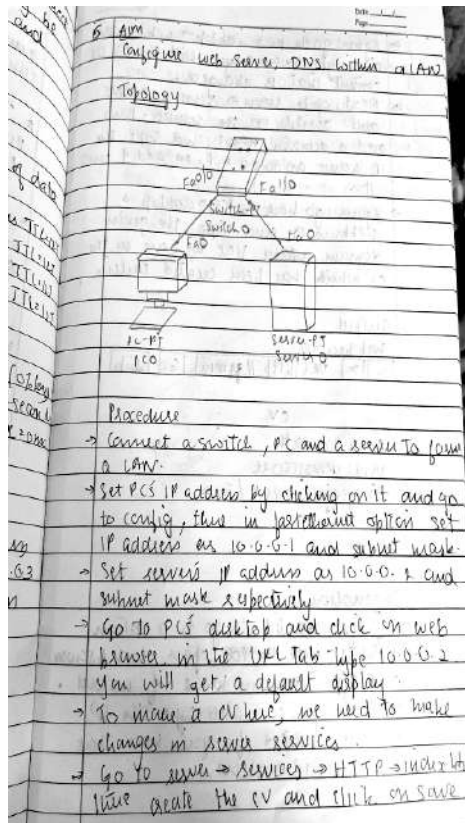 Date
Page
5 Aim
Configure web server, DNS within a LAN
Topology
Fa0/0 Fa1/0
Switch-PT
Switch 0
Fa0 Fa0
PC-PT Server-PT
PC0 Server 0
Procedure
→ Connect a switch, PC and a server to form
a LAN.
→ Set PC's IP address by clicking on it and go
to config, then in fastethernet option set
IP address as 10.0.0.1 and subnet mask.
→ Set server's IP address as 10.0.0.2 and
subnet mask respectively
→ Go to PC's desktop and click on web
browser in the URL Tab type 10.0.0.2
you will get a default display.
→ To make a CV here, we need to make
changes in server services.
→ Go to server → services → HTTP → index
create the CV and click on save